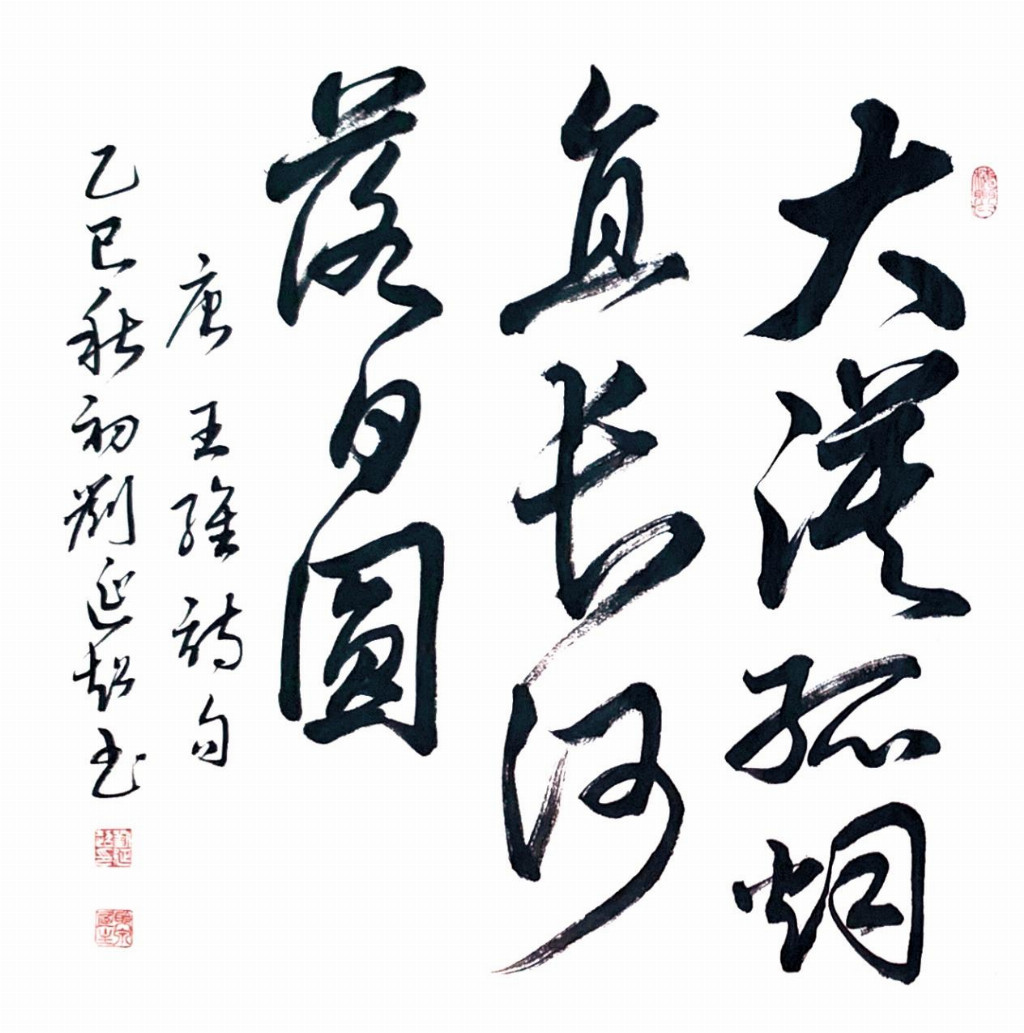 大漠孤烟
直长河
落日圆
唐王維詩句
乙巳秋初劉延超书